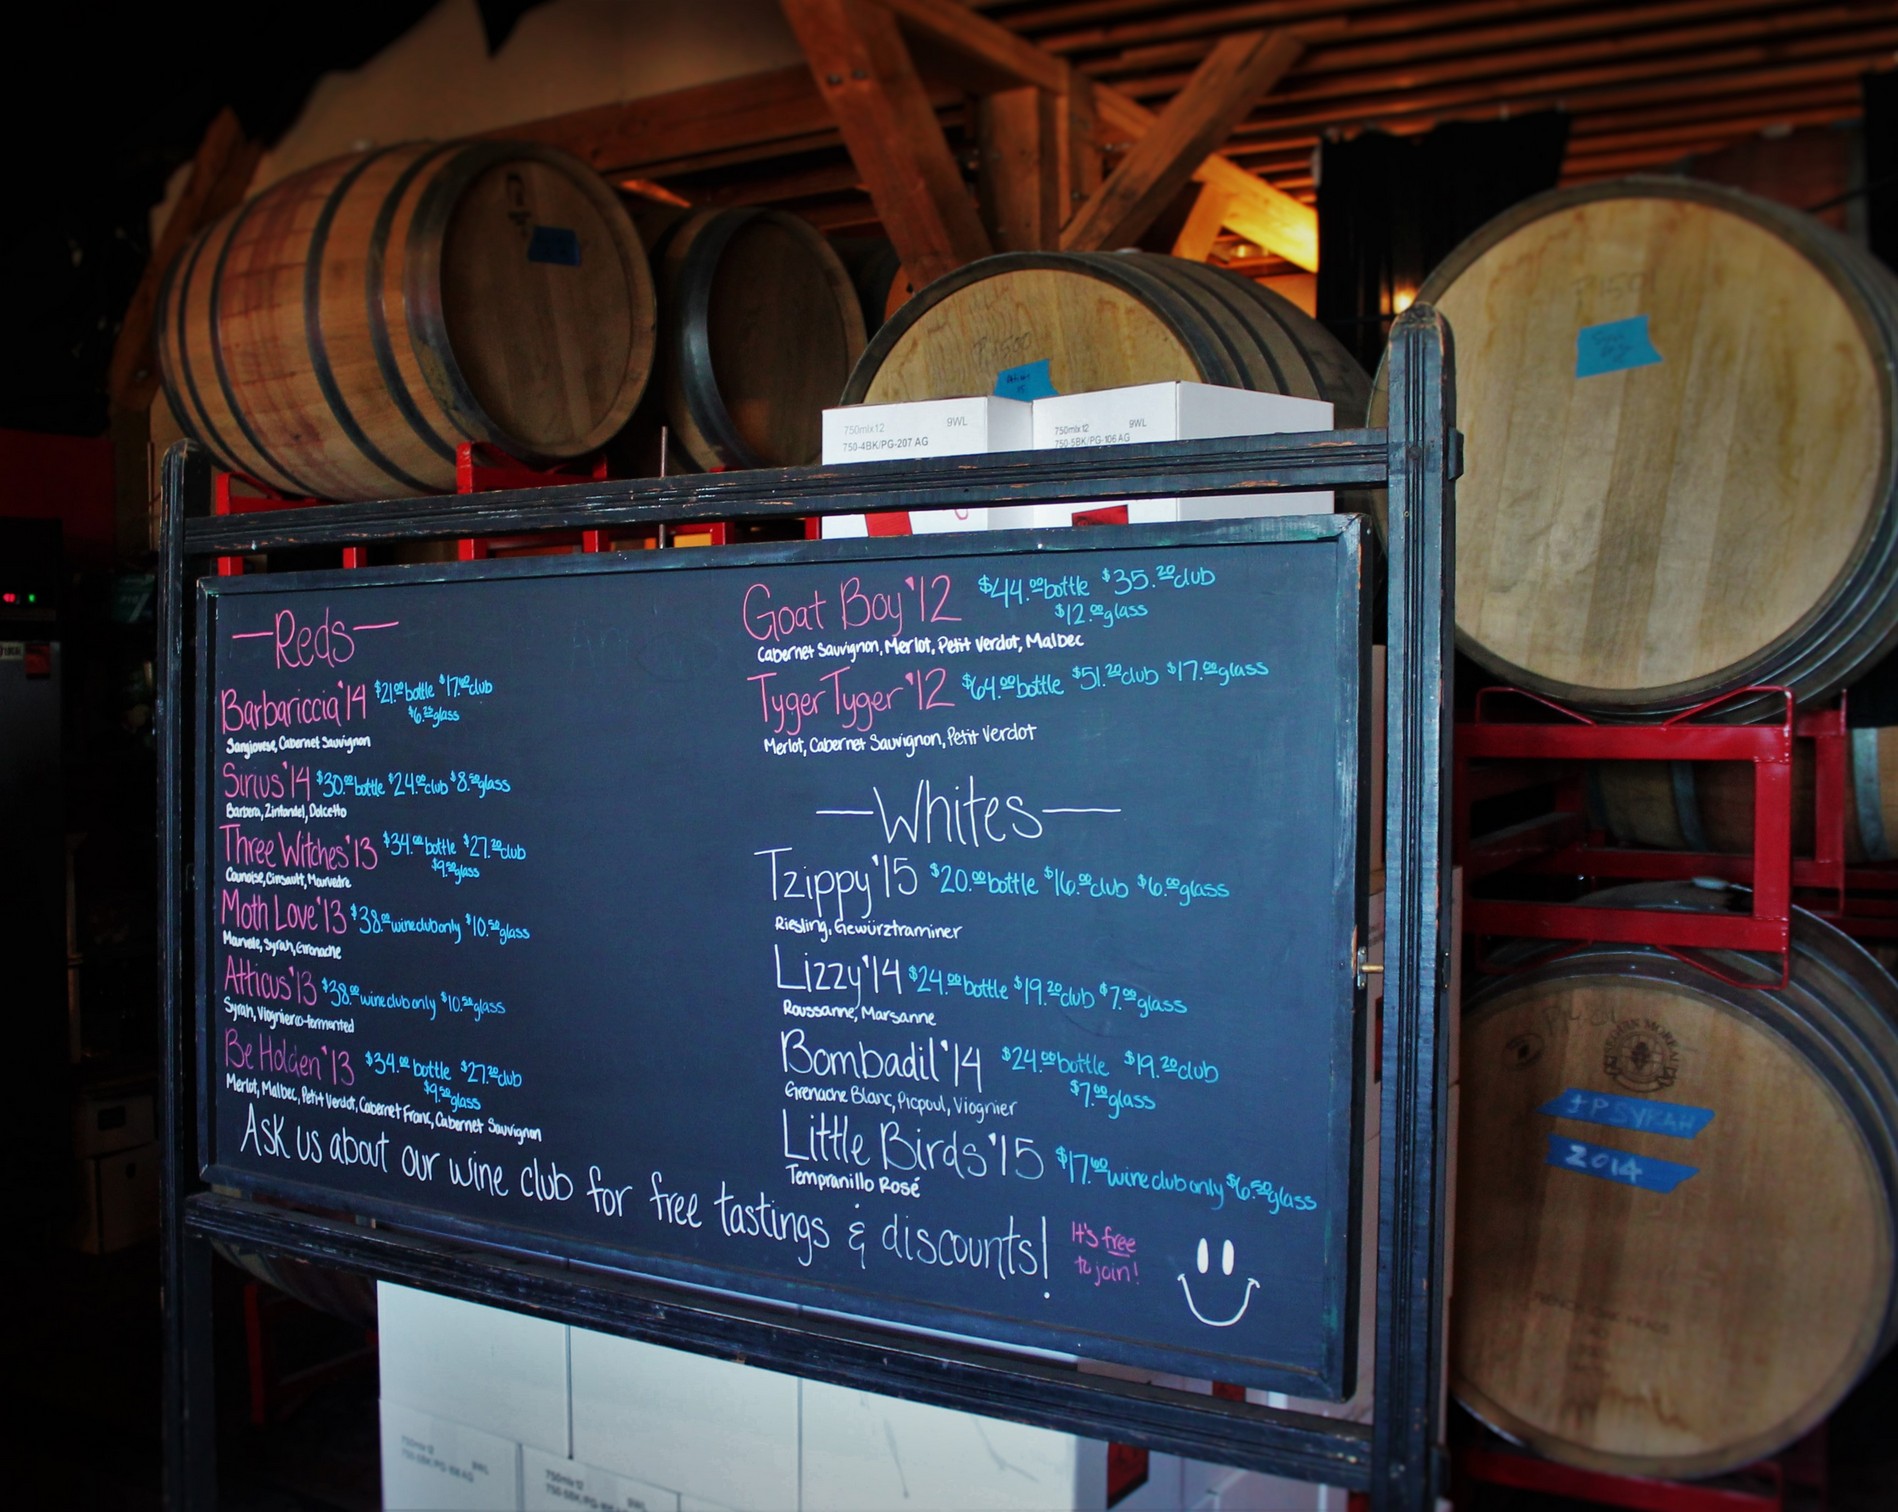 750mlx12 9WL
750-4BK/PG-207 AG
750mlx12 9WL
750-5BK/PG-106 AG
—Reds—
Barbariccia '14 $21.00 bottle $17.60 club
$6.25 glass
Sangiovese, Cabernet Sauvignon
Sirius '14 $30.00 bottle $24.00 club $8.50 glass
Barbera, Zinfandel, Dolcetto
Three Witches '13 $34.00 bottle $27.20 club
$9.50 glass
Counoise, Cinsault, Mourvedre
Moth Love '13 $38.00 wine club only $10.50 glass
Syrah, Grenache
Atticus '13 $38.00 wine club only $10.50 glass
Syrah, Viognier co-fermented
Be Holden '13 $34.00 bottle $27.20 club
$9.50 glass
Merlot, Malbec, Petit Verdot, Cabernet Franc, Cabernet Sauvignon
Goat Boy '12 $44.00 bottle $35.20 club
$12.00 glass
Cabernet Sauvignon, Merlot, Petit Verdot, Malbec
Tyger Tyger '12 $64.00 bottle $51.20 club $17.00 glass
Merlot, Cabernet Sauvignon, Petit Verdot
—Whites—
Tzippy '15 $20.00 bottle $16.00 club $6.00 glass
Riesling, Gewürztraminer
Lizzy '14 $24.00 bottle $19.20 club $7.00 glass
Roussanne, Marsanne
Bombadil '14 $24.00 bottle $19.20 club
$7.00 glass
Grenache Blanc, Picpoul, Viognier
Little Birds '15 $17.60 wine club only $6.50 glass
Tempranillo Rosé
Ask us about our wine club for free tastings & discounts!
It's free
to join!
JP SYRAH
2014
750mlx12